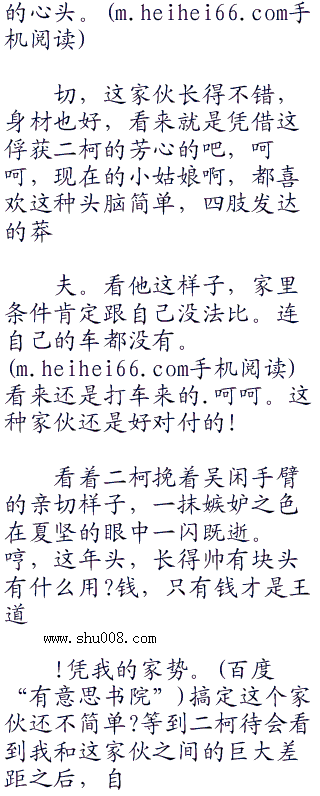 的心头。(m.heihei66.com手
机阅读)
切，这家伙长得不错，
身材也好，看来就是凭借这
俘获二柯的芳心的吧，呵
呵，现在的小姑娘啊，都喜
欢这种头脑简单，四肢发达
的莽
夫。看他这样子，家里
条件肯定跟自己没法比。连
自己的车都没有。
(m.heihei66.com手机阅读)
看来还是打车来的.呵呵。这
种家伙还是好对付的!
看着二柯挽着吴闲手臂
的亲切样子，一抹嫉妒之色
在夏坚的眼中一闪既逝。
哼，这年头，长得帅有块头
有什么用?钱，只有钱才是王
道
www.shu008.com
!凭我的家势。(百度
“有意思书院”)搞定这个家
伙还不简单?等到二柯待会看
到我和这家伙之间的巨大差
距之后，自